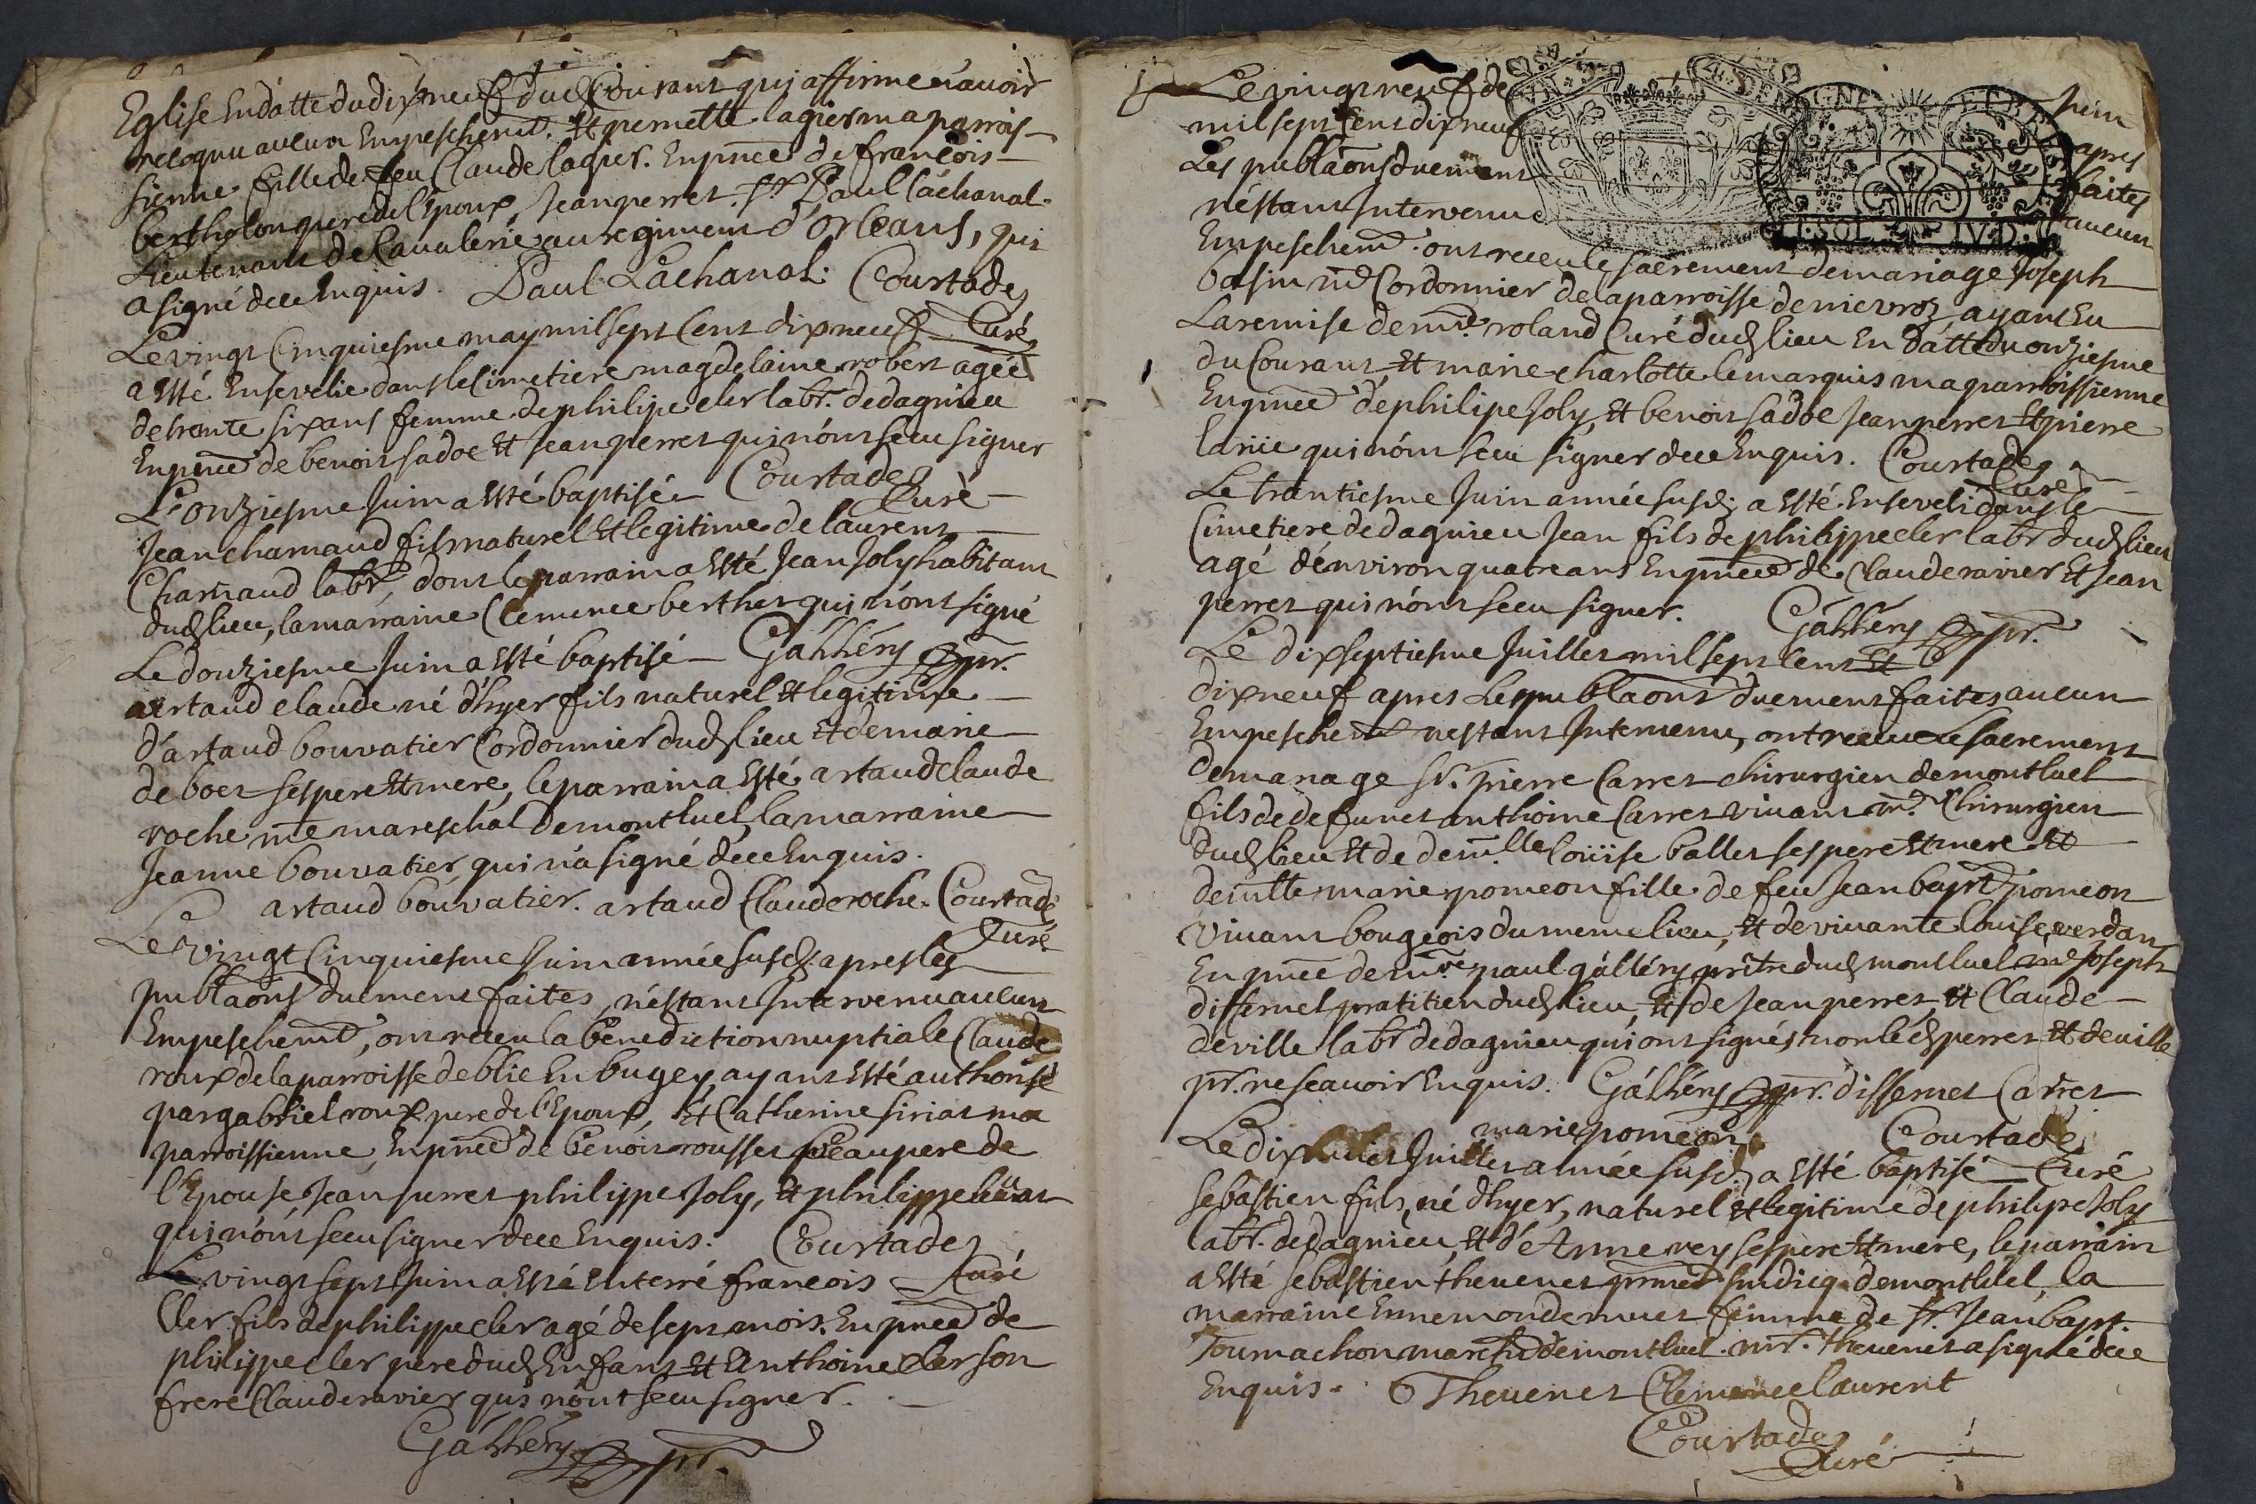 Eglise En datte du dixneuf dud Courant qui affirme n'avoir
recognu aucun Empeschemt. Et pernette lagier ma parrois-
sienne fille de feu Claude lagier. En pnce de francois
bertholon pere de l'Epoux Jean perret. Sr Paul Lachanal
Lieutenant de Cavalerie au regiment d'Orleans, qui
a signé de ce Enquis. Paul Lachanal. Courtade
Curé
Le vingt Cinquiesme may mil sept Cent dixneuf
a Esté Ensevelie dans le Cimetiere magdelaine robert agée
de trente six ans femme de philipe cler labr. de dagnieu
En pnce de benoit sadoe Et Jean perret qui n'ont sceu signer
Courtade
Curé
L'onziesme Juin a Esté baptisé
Jean charnaud fils naturel Et legitime de laurent
Charnaud labr, dont le parrain a Esté Jean Joly habitant
dud lieu, la marraine Clemence berthet qui n'ont signé
Gálléry ppr.
Le douziesme Juin a Esté baptisé
artaud claude né d'hyer fils naturel Et legitime
d'artaud bouvatier Cordonnier dud lieu Et de marie
de boet ses pere Et mere, le parrain a Esté artaud claude
roche me mareschal de montluel, la marraine
Jeanne bouvatier qui n'a signé de ce Enquis.
artaud bouvatier. artaud Claude roche. Courtade
Curé
Le vingt Cinquiesme Juin année susd apres les
publaons duement faites, n'estant Intervenu aucun
Empeschemt, ont receu la benediction nuptiale Claude
roux de la parroisse de blie En bugey, ayant Esté authorisé
par gabriel roux pere de l'Epoux, Et Catherine siriat ma
parroissienne, En pnce de benoit rousset beaupere de
l'Epouse Jean perret philippe Joly, Et philippe
qui n'ont sceu signer de ce Enquis. Courtade
Curé
Le vingt sept Juin a Esté Enterré francois
Cler fils de philippe cler agé de sept mois. En pnce de
philippe cler pere dud Enfant Et Anthoine cler son
frere Claude ravier qui n'ont sceu signer.
Gálléry ppr.
Le vingt neuf de Juin
mil sept Cent dixneuf apres
Les publaons duement faites
n'estant Intervenu aucun
Empeschemt. ont receu le sacrement de mariage Joseph
basin md Cordonnier de la parroisse de nievroz ayant Eu
La remise de mre roland Curé dud lieu En datte du onziesme
du Courant, Et marie charlotte lemarquis ma parroissienne
En pnce de philipe Joly, Et benoit sadoe Jean perret Et pierre
larüe qui n'ont sceu signer de ce Enquis. Courtade
Curé
Le trantiesme Juin année susd. a Esté Enseveli dans le
Cimetiere de dagnieu Jean fils de philippe cler labr dud lieu
agé d'environ quatre ans En pnce de Claude ravier Et Jean
perret qui n'ont sceu signer. Gálléry ppr.
Le dixseptiesme Juillet mil sept Cent Et
dixneuf apres Les publaons duement faites aucun
Empeschemt n'estant Intervenu, ont receu le sacrement
de mariage Sr. pierre Carret chirurgien de montluel
fils de defunct anthoine Carret vivant md Chirurgien
dud lieu Et de demlle Louïse ballet ses pere Et mere Et
demlle marie pomeon fille de feu Jean bapt pomeon
vivant bougeois du meme lieu, Et de vivante louise verdan
En pnce de mre paul gálléry prêtre dud montluel me Joseph
differnet pratitien dud lieu, Et de Jean perret, Et Claude
deville labr de dagnieu qui ont signés non led perret Et deville
pr. ne scavoir Enquis. Gálléry ppr. dissernet Carret
marie pomeon Courtade
Curé
Le dixhuict Juillet année susd. a Esté baptisé
Sebastien fils, né d'hyer, naturel Et legitime de philipe Joly
labr. de dagnieu, Et d'Anne rey ses pere Et mere, le parrain
a Esté Sebastien thevenet premier sindicq de montluel, la
marraine Ennemonde muet femme de Sr. Jean bapt.
Tournachon marchd de montluel. mr. thevenet a signé de ce
Enquis. Thevenet Clemence laurent
Courtade
Curé